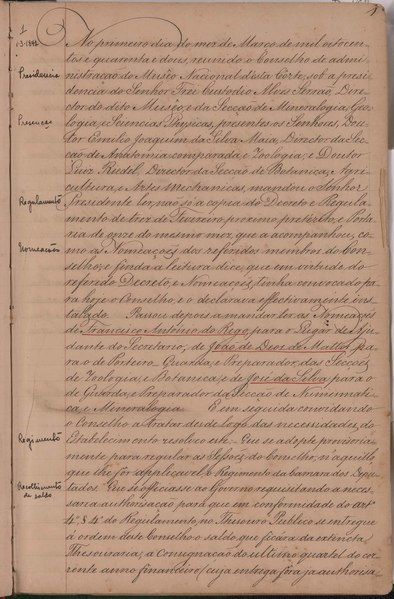 1
1-3-1842
Presidencia
Presenças
Regulamento
Nomeações
Regimento
Recolhimento
de saldo
No primeiro dia do mez de Março de mil oitocen-
tos e quarenta e dous, reunido o Conselho de admi-
nistração do Museo Nacional desta Côrte, sob a presi-
dencia do Senhor Frei Custodio Alves Serrão, Dire-
ctor do dito Museo, e da Secção de Mineralogia, Geo-
logia, e Sciencias Physicas, presentes os Senhores, Dou-
tor Emilio Joaquim da Silva Maia, Director da Sec-
cão de Anatomia comparada, e Zoologia, e Doutor
Luiz Riedel, Director da Secção de Botanica, Agri-
cultura, e Artes Mechanicas, mandou o Senhor
Presidente ler, não só a copia do Decreto e Regula-
mento de trez de Fevereiro proximo preterito, e Porta-
ria de onze do mesmo mez, que a acompanhou, co-
mo as Nomeações dos referidos membros do Con-
selho, e finda a lectura dice, que em virtude do
referido Decreto, e Nomeações, tinha convocado pa-
ra hoje o Conselho, e o declarava effectivamente ins-
tallado. Passou depois a mandar ler as Nomeações
de Francisco Antonio do Rego, para o Lugar de Aju-
dante do Secretario, de João de Deos de Mattos, pa-
ra o de Porteiro Guarda, e Preparador das Secções
de Zoologia, e Botanica, e de José da Silva, para o
de Guarda, e Preparador da Secção de Numismati-
ca, e Mineralogia. E em seguida convidando
o Conselho a tratar desde logo das necessidades do
Estabelecimento resolveo este - Que se adopte provisoria-
mente para regular as Sessões do Conselho, n'aquillo
que lhe fôr applicavel, o Regimento da Camara dos Depu-
tados. Que se officiasse ao Governo requisitando a neces-
saria authorisação para que em conformidade do artº
4º § 4º do Regulamento, no Thesouro Publico se entregue
á ordem deste Conselho o saldo que ficára da extincta
Thesouraria, a Consignação do ultimo quartel do cor-
rente anno financeiro (cuja entrega fôra ja authorisa-